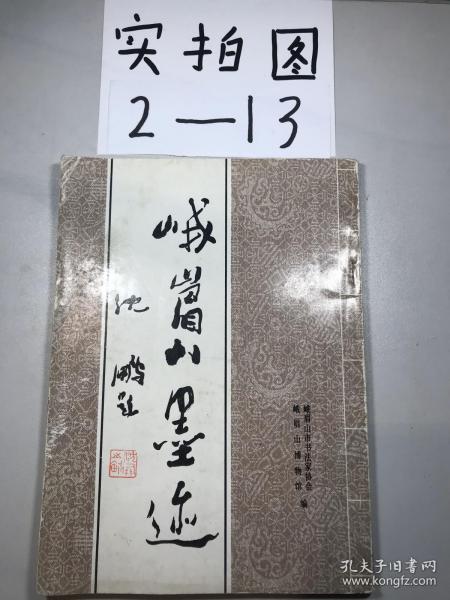 实拍图
2—13
峨眉山墨迹
沈鹏题
峨眉山市书法家协会
峨眉山博物馆 编
孔夫子旧书网
www.kongfz.com